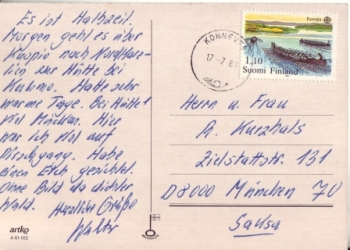 Es ist Halbzeit.
Morgen geht es über
Kuopio nach Nordkare-
lien zur Hütte bei
Kuhmo. Habe sehr
warme Tage. Bei Hütte 1
viel Mücken. Hier
war ich viel auf
Pirschgang. Habe
einen Elch gesichtet.
Ohne Bild da dichter
Wald. Herzliche Grüße
Walter
artko
KONNEVESI
17-7 81
Europa
1,10
Suomi Finland
Herrn u. Frau
A. Kurzhals
Zielstattstr. 131
D8000 München 70
Saksa